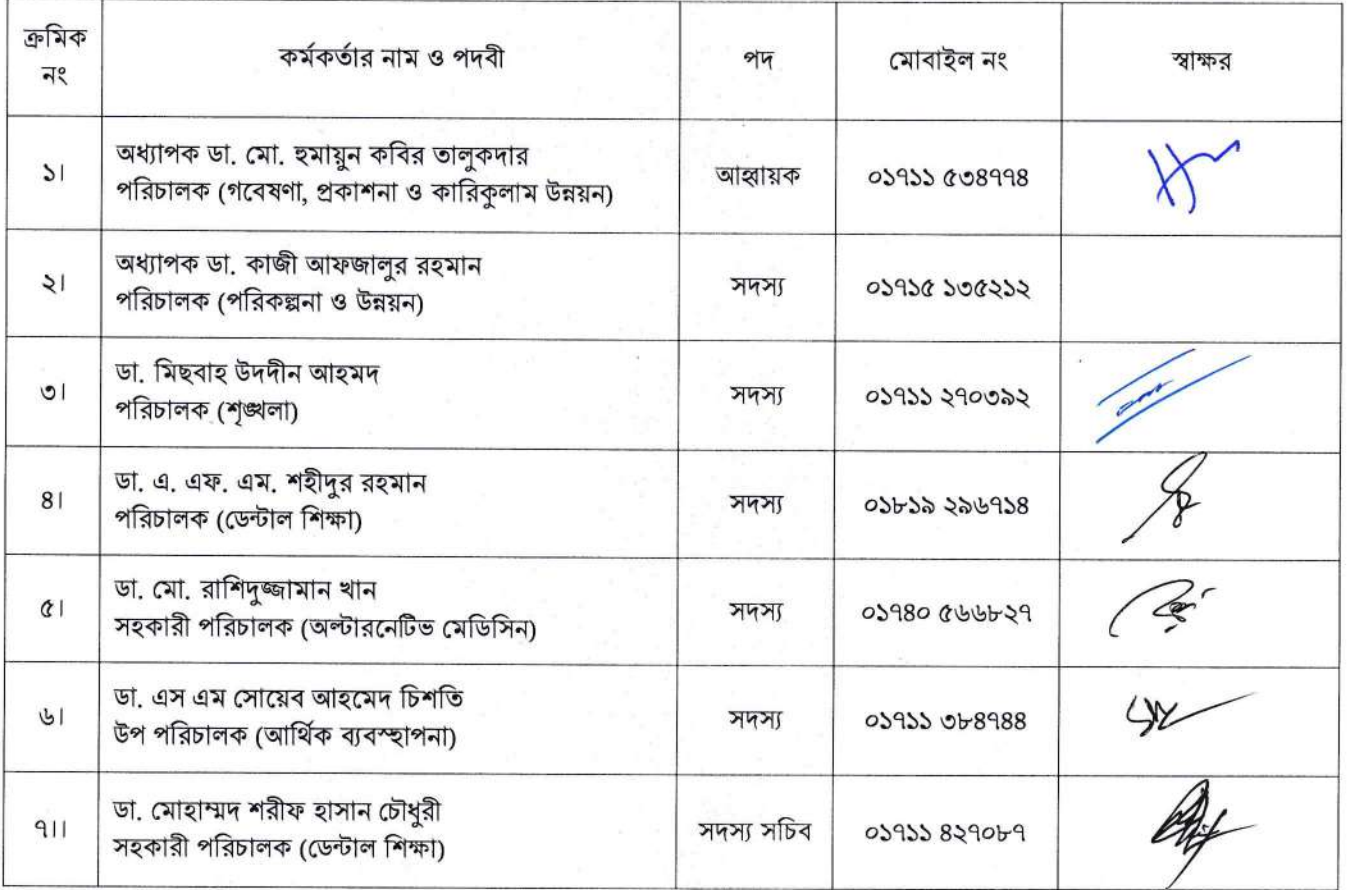 ক্রমিক নং কর্মকর্তার নাম ও পদবী পদ মোবাইল নং স্বাক্ষর
১। অধ্যাপক ডা. মো. হুমায়ুন কবির তালুকদার
পরিচালক (গবেষণা, প্রকাশনা ও কারিকুলাম উন্নয়ন) আহ্বায়ক ০১৭১১ ৫৩৪৭৭৪
২। অধ্যাপক ডা. কাজী আফজালুর রহমান
পরিচালক (পরিকল্পনা ও উন্নয়ন) সদস্য ০১৭১৫ ১৩৫২১২
৩। ডা. মিছবাহ উদদীন আহমদ
পরিচালক (শৃঙ্খলা) সদস্য ০১৭১১ ২৭০৩৯২
৪। ডা. এ. এফ. এম. শহীদুর রহমান
পরিচালক (ডেন্টাল শিক্ষা) সদস্য ০১৮১৯ ২৯৬৭১৪
৫। ডা. মো. রাশিদুজ্জামান খান
সহকারী পরিচালক (অল্টারনেটিভ মেডিসিন) সদস্য ০১৭৪০ ৫৬৬৮২৭
৬। ডা. এস এম সোয়েব আহমেদ চিশতি
উপ পরিচালক (আর্থিক ব্যবস্হাপনা) সদস্য ০১৭১১ ৩৮৪৭৪৪
৭।। ডা. মোহাম্মদ শরীফ হাসান চৌধুরী
সহকারী পরিচালক (ডেন্টাল শিক্ষা) সদস্য সচিব ০১৭১১ ৪২৭০৮৭